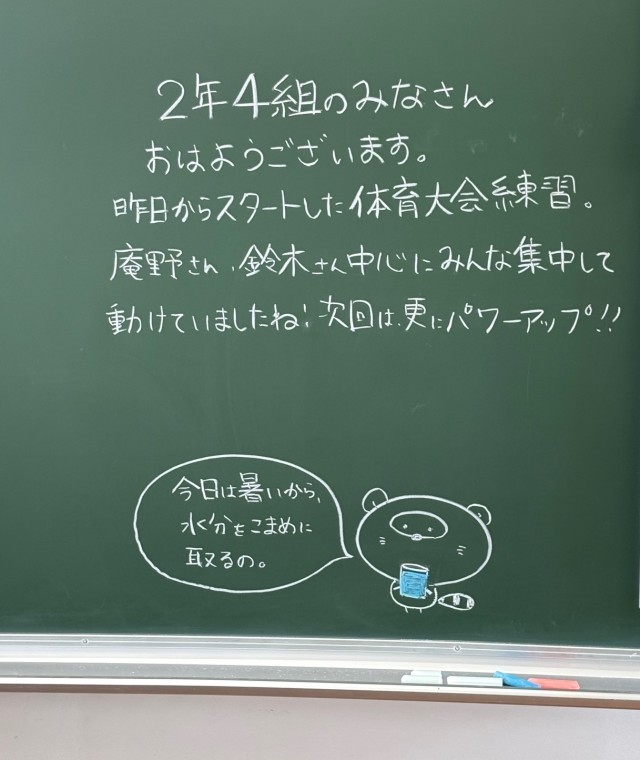 2年4組のみなさん
おはようございます。
昨日からスタートした体育大会練習。
庵野さん、鈴木さん中心にみんな集中して
動けていましたね!次回は、更にパワーアップ!!
今日は暑いから、
水分をこまめに
取るの。